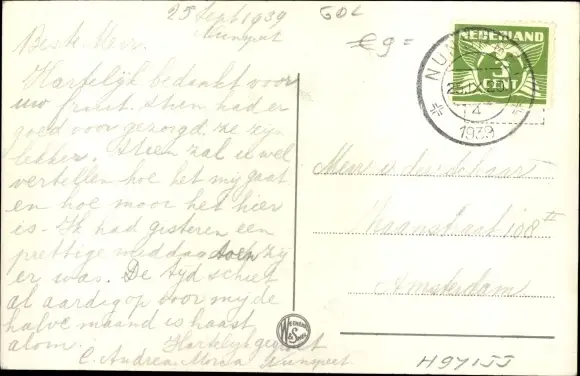 25 Sept 1939
Nunspeet
GDL
€ 9 =
Beste Mevr.
Hartelijk bedankt voor
uw fruit. Stien had er
goed voor gezorgd. ze zijn
lekker. Stien zal u wel
vertellen hoe het mij gaat
en hoe mooi het hier
is. Ik had gisteren een
prettige middag toen zij
er was. De tijd schiet
al aardig op voor mij de
halve maand is haast
alom. Hartelijk gegroet
C. Andrea Nunspeet
NEDERLAND
3
CENT
NUN
1939
4
Mevr
Zaanstraat 108 III
Amsterdam
WEENENK & SNEL
H97155